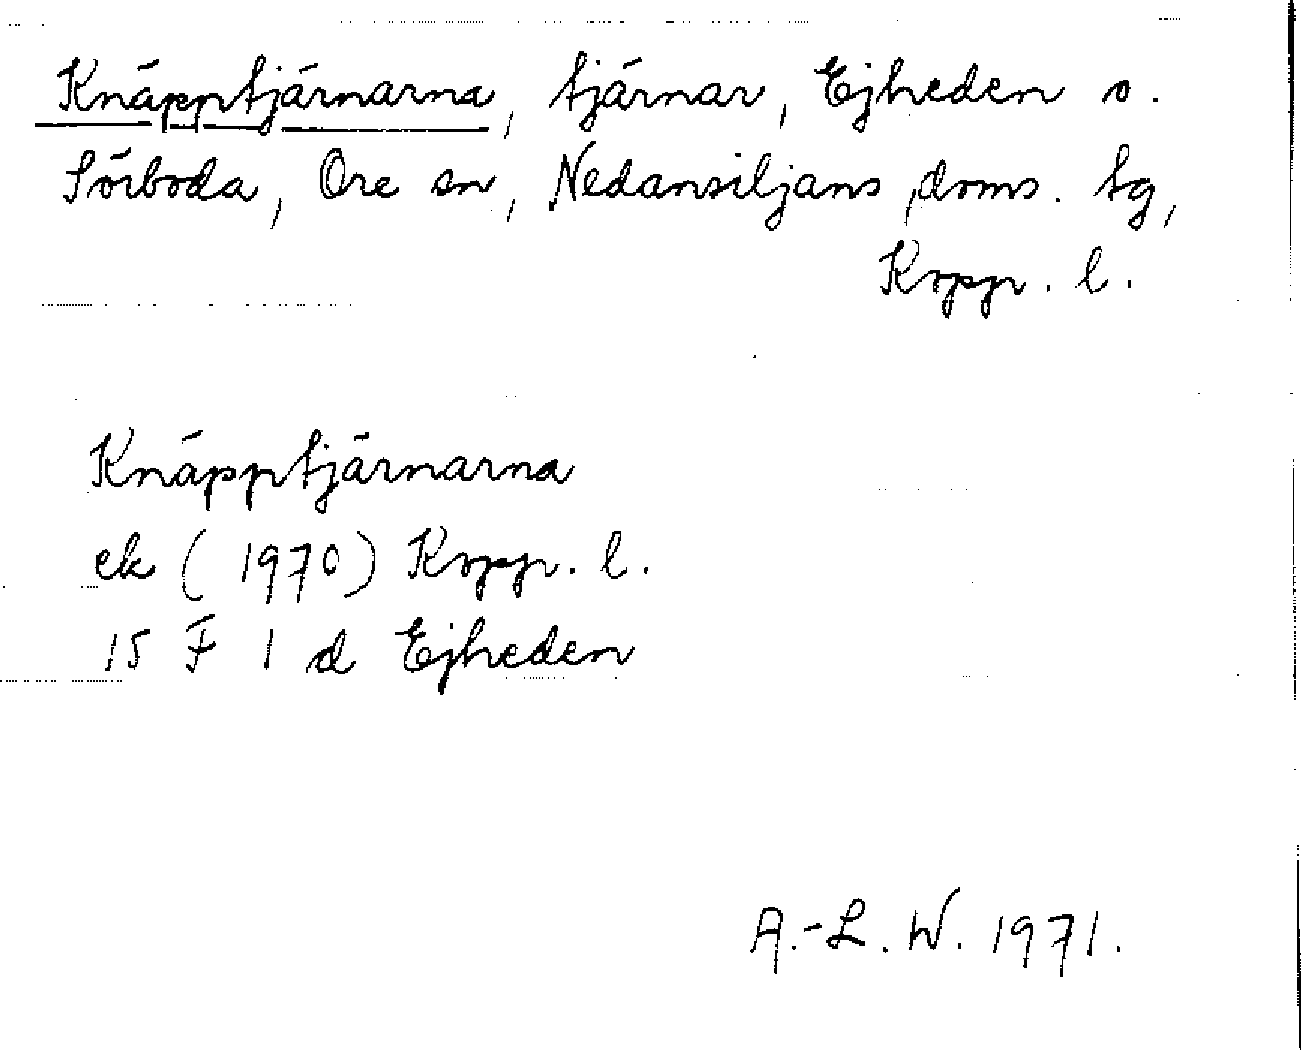 Knäpptjärnarna, tjärnar, Ejheden o.
Sörboda, Ore sn, Nedansiljans doms. tg,
Kopp. l.
Knäpptjärnarna
ek (1970) Kopp. l.
15 F 1 d Ejheden
A.-L. W. 1971.